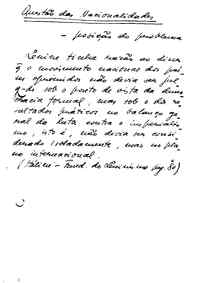 Questão das Nacionalidades
— posição do problema
Lenine tinha razão ao dizer
q o movimento nacional dos paí-
ses oprimidos não devia ser jul
gado sob o ponto de vista da demo
cracia formal, mas sob o dos re
sultados práticos no balanço ge
ral da luta contra o imperialis
mo, isto é, não devia ser consi
derado isoladamente, mas no pla
no internacional.
(Staline - Fund. do Leninismo pag. 80)